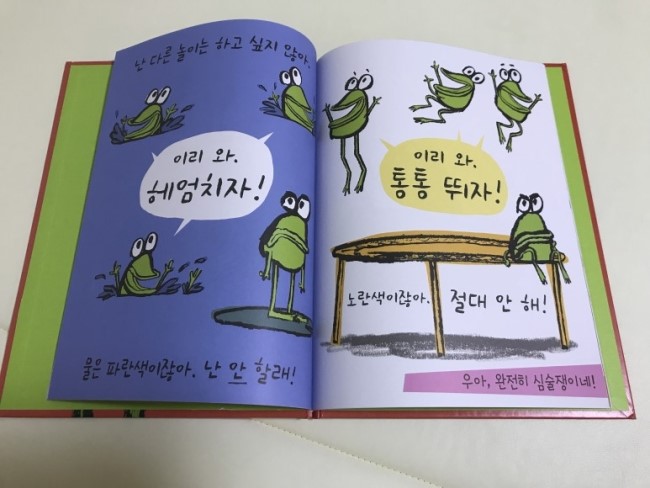 난 다른 놀이는 하고 싶지 않아.
이리 와.
헤엄치자!
물은 파란색이잖아. 난 안 할래!
이리 와.
통통 뛰자!
노란색이잖아. 절대 안 해!
우아, 완전히 심술쟁이네!